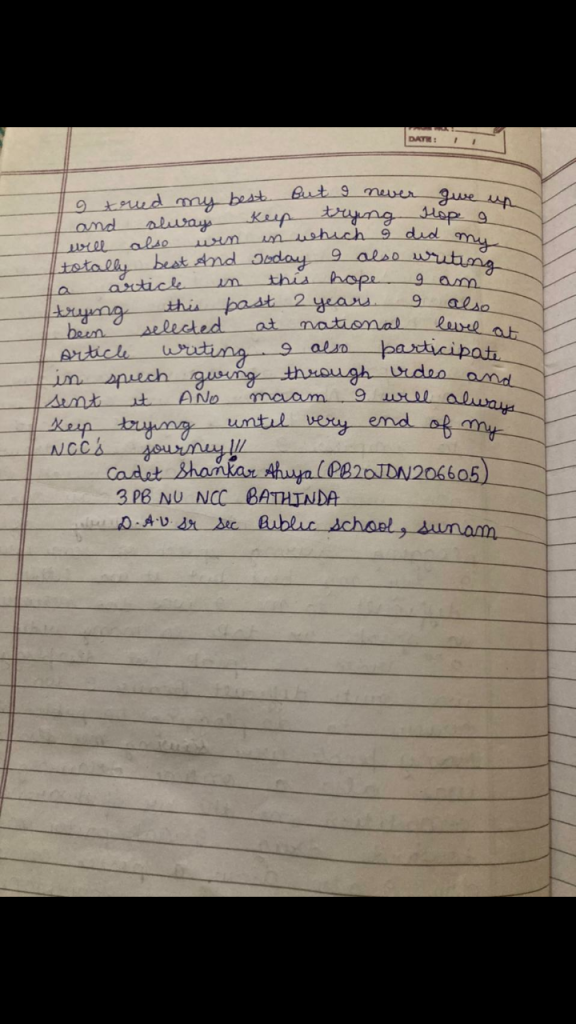 PAGE NO.:
DATE: / /
I tried my best. But I never give up
and always Keep trying Hope I
will also win in which I did my
totally best And Today I also writing
a article in this hope. I am
trying this past 2 years. I also
been selected at national level at
article writing. I also participate
in speech giving through video and
sent it ANO maam. I will always
Keep trying until very end of my
NCC's journey!!!
Cadet Shankar Ahuja (PB20JDN206605)
3 PB NU NCC BATHINDA
D.A.V Sr Sec Public School, Sunam